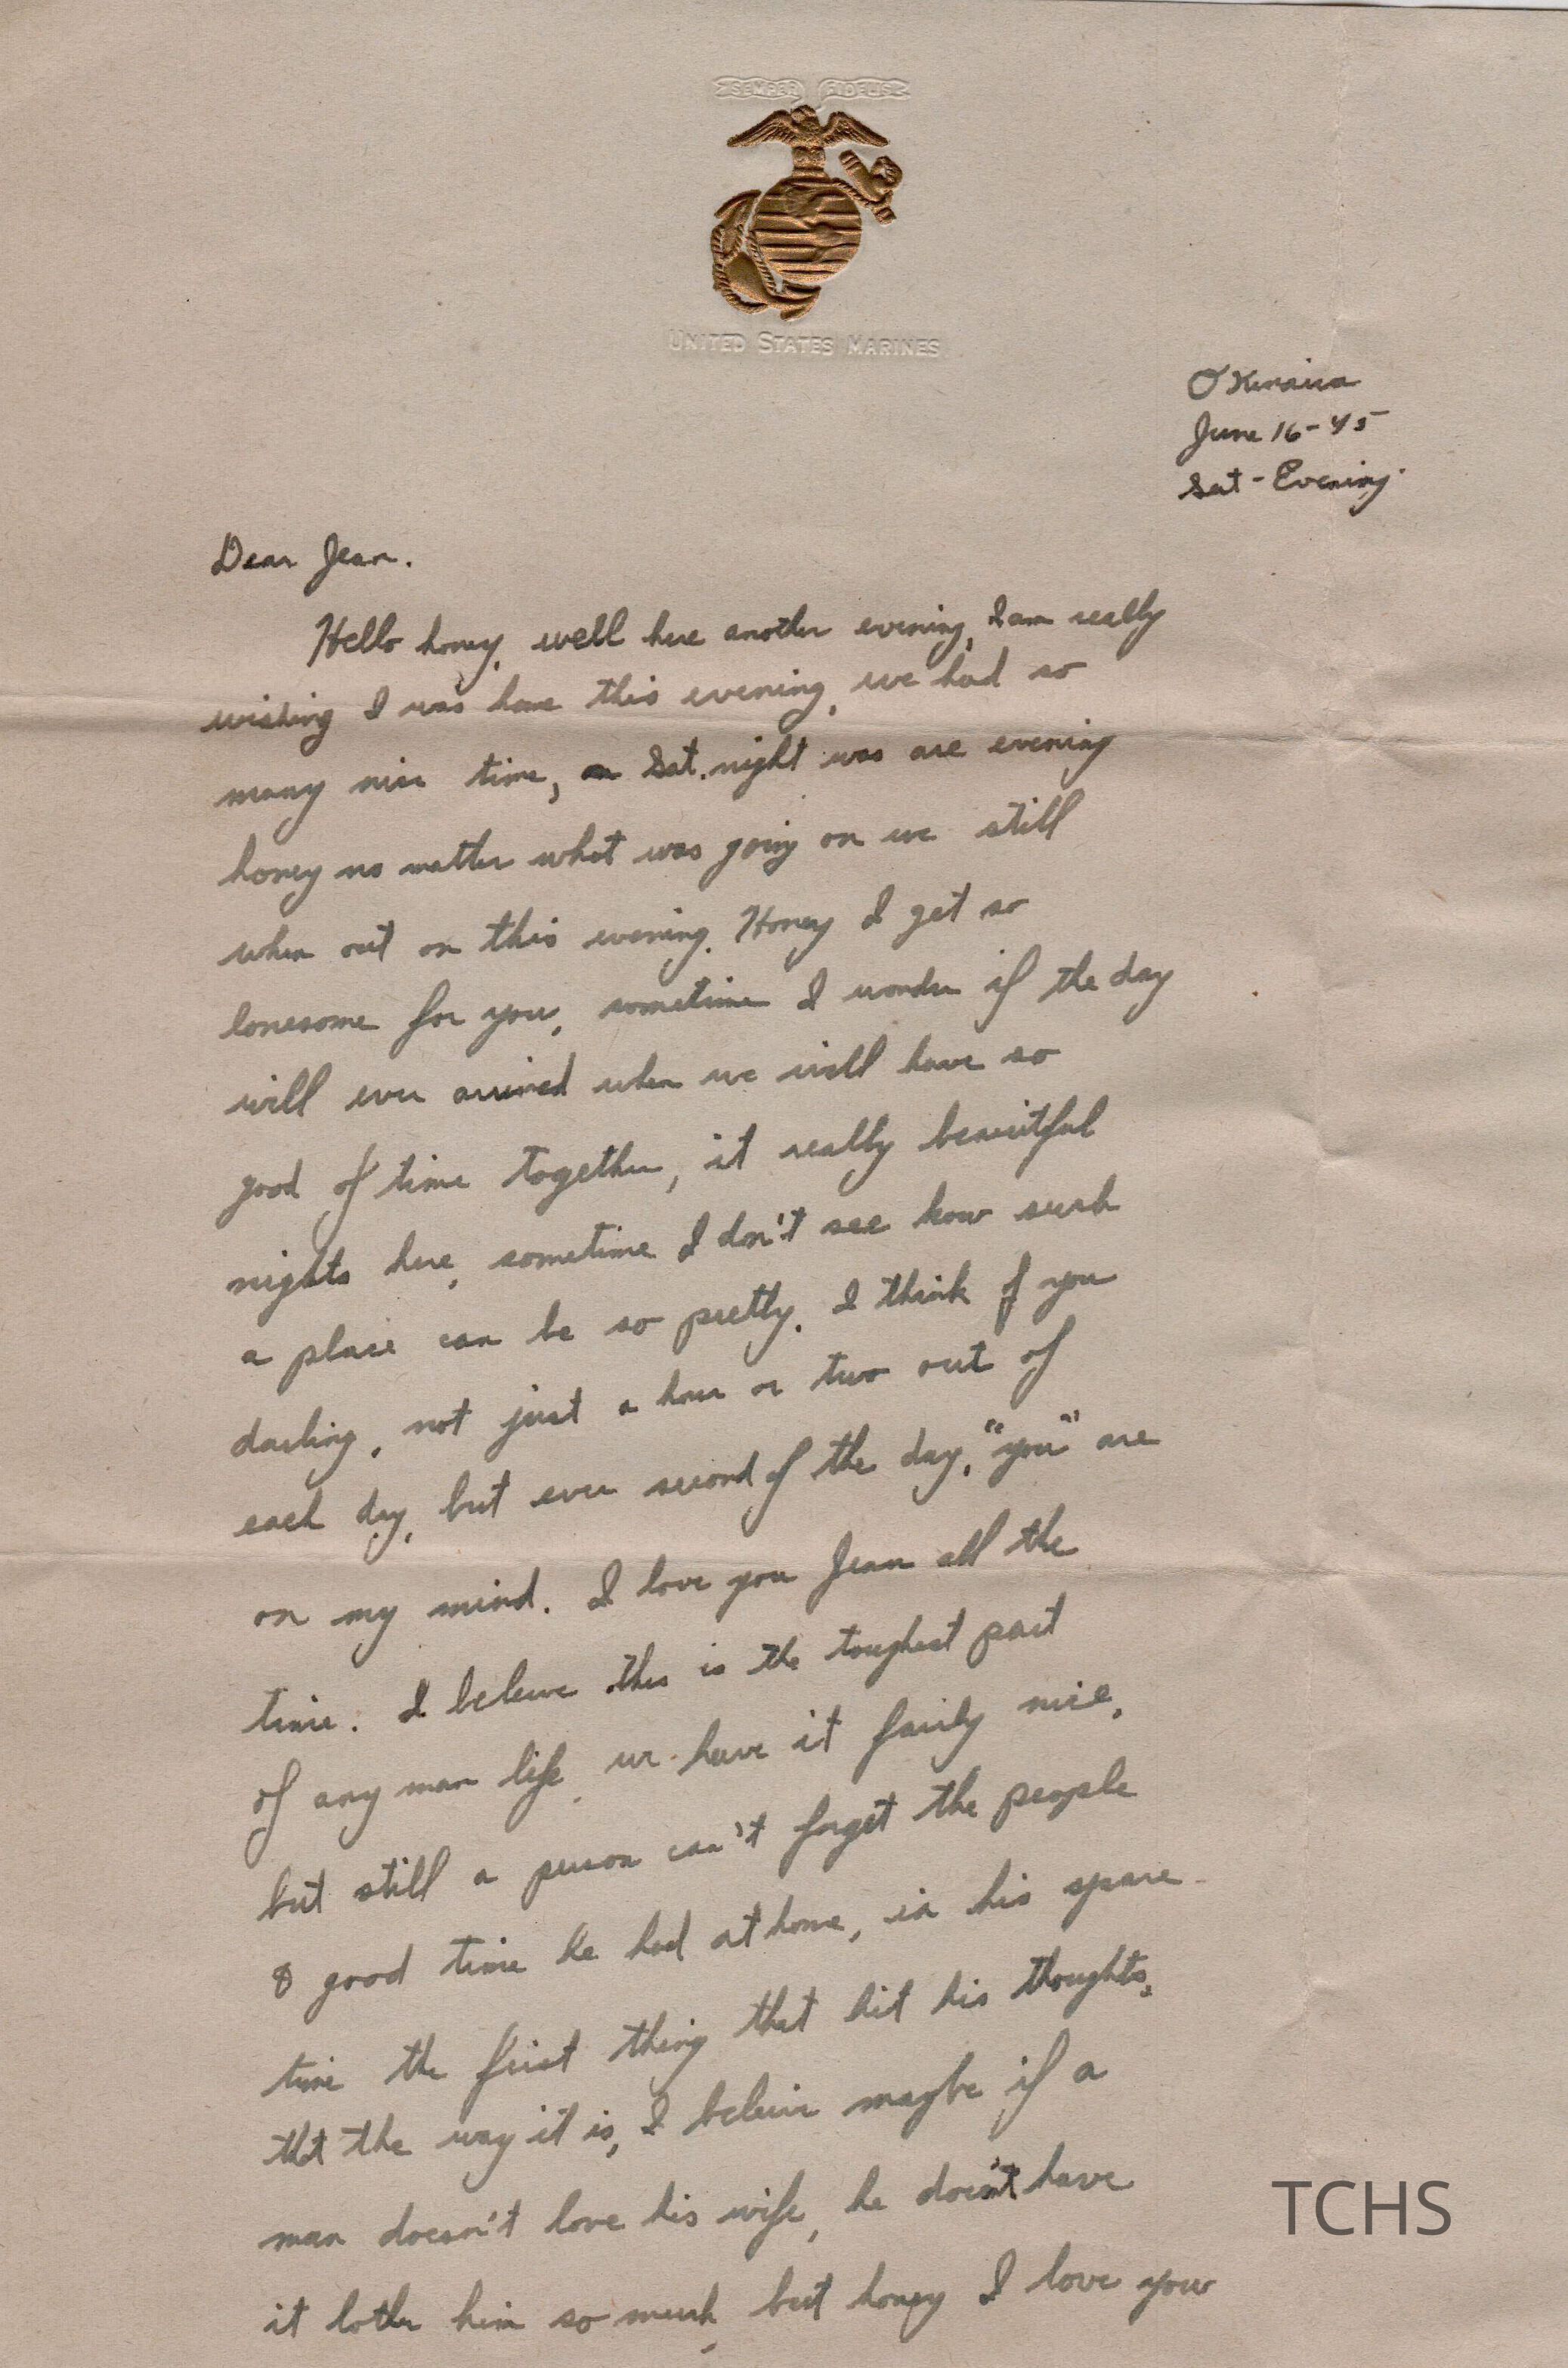 SEMPER FIDELIS
UNITED STATES MARINES
Okinawa
June 16-45
Sat - Evening.
Dear Jean.
Hello honey, well here another evening, I am really
wishing I was home this evening, we had so
many nice time, on Sat. night was are evening
honey no matter what was going on we still
when out on this evening. Honey I get so
lonesome for you, sometime I wonder if the day
will ever arrived when we will have so
good of time together, it really beauitful
nights here, sometime I don't see how such
a place can be so pretty. I think of you
darling, not just a hour or two out of
each day, but ever second of the day, "you" are
on my mind. I love you Jean all the
time. I beleive this is the toughest part
of any man life, we have it fairly nice,
but still a person can't forget the people
& good time he had at home, in his spare
time the first thing that hit his thoughts,
tht the way it is, I beleive maybe if a
man doesn't love his wife, he doesn't have
it bother him so much, but honey I love you
TCHS